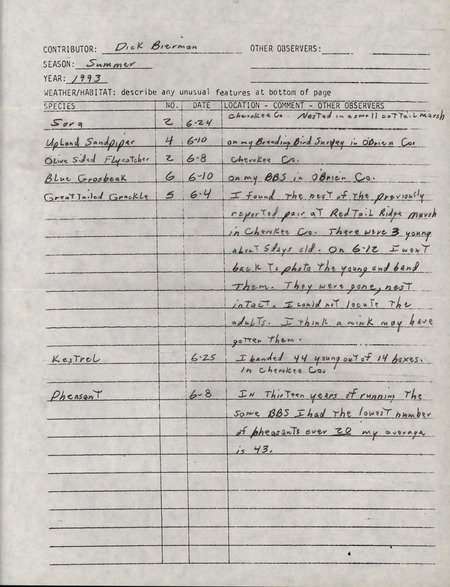 CONTRIBUTOR: Dick Bierman OTHER OBSERVERS:
SEASON: Summer
YEAR: 1993
WEATHER/HABITAT: describe any unusual features at bottom of page
SPECIES NO. DATE LOCATION - COMMENT - OTHER OBSERVERS
Sora 2 6-24 Cherokee Co. Nested in a small cattail marsh
Upland Sandpiper 4 6-10 on my Breeding Bird Survey in OBrien Co.
Olive Sided Flycatcher 2 6-8 Cherokee Co.
Blue Grosbeak 6 6-10 on my BBS in OBrien Co.
Great Tailed Grackle 5 6-4 I found the nest of the previously
reported pair at Red Tail Ridge marsh
in Cherokee Co. There were 3 young
about 5 days old. On 6-12 I went
back to photo the young and band
them. They were gone, nest
intact. I could not locate the
adults. I think a mink may have
gotten them.
Kestrel 6-25 I banded 44 young out of 14 boxes.
in Cherokee Co.
Pheasant 6-8 In Thirteen years of running the
same BBS I had the lowest number
of pheasants ever 20 my average
is 43.